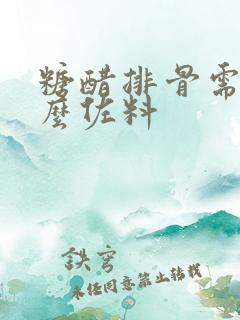 糖醋排骨需
麽佐料
鉄穹
未经同意禁止转载